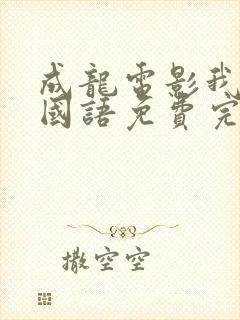 成龍電影我
國語免費完
撒空空